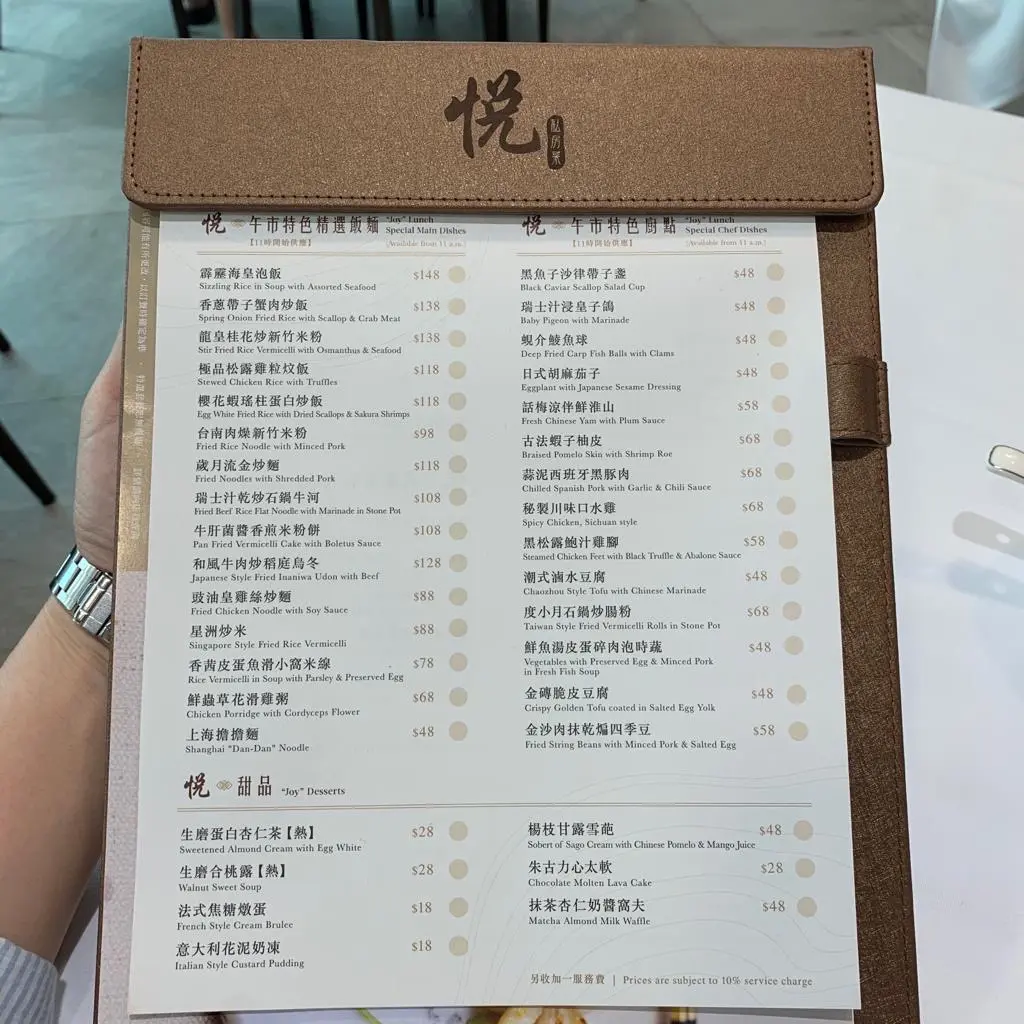 悅
私房菜
悅 午市特色精選飯麵 "Joy" Lunch
Special Main Dishes
【11時開始供應】 (Available from 11 a.m.)
霹靂海皇泡飯 $148
Sizzling Rice in Soup with Assorted Seafood
香蔥帶子蟹肉炒飯 $138
Spring Onion Fried Rice with Scallop & Crab Meat
龍皇桂花炒新竹米粉 $138
Stir Fried Rice Vermicelli with Osmanthus & Seafood
極品松露雞粒炆飯 $118
Stewed Chicken Rice with Truffles
櫻花蝦瑤柱蛋白炒飯 $118
Egg White Fried Rice with Dried Scallops & Sakura Shrimps
台南肉燥新竹米粉 $98
Fried Rice Noodle with Minced Pork
歲月流金炒麵 $118
Fried Noodles with Shredded Pork
瑞士汁乾炒石鍋牛河 $108
Fried Beef Rice Flat Noodle with Marinade in Stone Pot
牛肝菌醬香煎米粉餅 $108
Pan Fried Vermicelli Cake with Boletus Sauce
和風牛肉炒稻庭烏冬 $128
Japanese Style Fried Inaniwa Udon with Beef
豉油皇雞絲炒麵 $88
Fried Chicken Noodle with Soy Sauce
星洲炒米 $88
Singapore Style Fried Rice Vermicelli
香茜皮蛋魚滑小窩米線 $78
Rice Vermicelli in Soup with Parsley & Preserved Egg
鮮蟲草花滑雞粥 $68
Chicken Porridge with Cordyceps Flower
上海擔擔麵 $48
Shanghai "Dan-Dan" Noodle
悅 午市特色廚點 "Joy" Lunch
Special Chef Dishes
【11時開始供應】 (Available from 11 a.m.)
黑魚子沙律帶子盞 $48
Black Caviar Scallop Salad Cup
瑞士汁浸皇子鴿 $48
Baby Pigeon with Marinade
蜆介鯪魚球 $48
Deep Fried Carp Fish Balls with Clams
日式胡麻茄子 $48
Eggplant with Japanese Sesame Dressing
話梅涼伴鮮淮山 $58
Fresh Chinese Yam with Plum Sauce
古法蝦子柚皮 $68
Braised Pomelo Skin with Shrimp Roe
蒜泥西班牙黑豚肉 $68
Chilled Spanish Pork with Garlic & Chili Sauce
秘製川味口水雞 $68
Spicy Chicken, Sichuan style
黑松露鮑汁雞腳 $58
Steamed Chicken Feet with Black Truffle & Abalone Sauce
潮式滷水豆腐 $48
Chaozhou Style Tofu with Chinese Marinade
度小月石鍋炒腸粉 $68
Taiwan Style Fried Vermicelli Rolls in Stone Pot
鮮魚湯皮蛋碎肉泡時蔬 $48
Vegetables with Preserved Egg & Minced Pork
in Fresh Fish Soup
金磚脆皮豆腐 $48
Crispy Golden Tofu coated in Salted Egg Yolk
金沙肉抹乾煸四季豆 $58
Fried String Beans with Minced Pork & Salted Egg
悅 甜品 "Joy" Desserts
生磨蛋白杏仁茶【熱】 $28
Sweetened Almond Cream with Egg White
生磨合桃露【熱】 $28
Walnut Sweet Soup
法式焦糖燉蛋 $18
French Style Cream Brulee
意大利花泥奶凍 $18
Italian Style Custard Pudding
楊枝甘露雪葩 $48
Sobert of Sago Cream with Chinese Pomelo & Mango Juice
朱古力心太軟 $28
Chocolate Molten Lava Cake
抹茶杏仁奶醬窩夫 $48
Matcha Almond Milk Waffle
另收加一服務費 | Prices are subject to 10% service charge